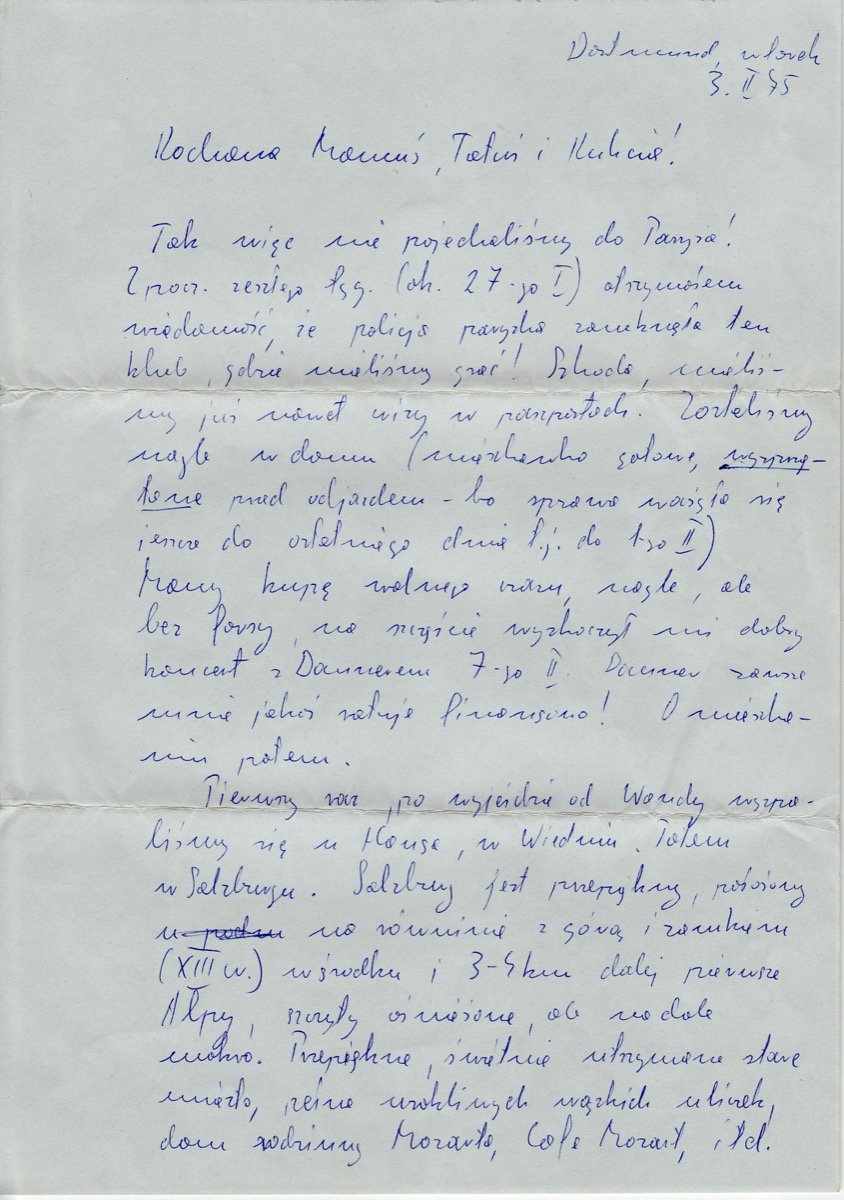 Dortmund, wtorek
3. II 75
Kochana Mamuś, Tatuś i Kubcia!
Tak więc nie pojechaliśmy do Paryża!
Z pocz. zeszłego tyg. (ok. 27-go I) otrzymałem
wiadomość, że policja paryska zamknęła ten
klub, gdzie mieliśmy grać! Szkoda, mieliś-
my już nawet wizy w paszportach. Zostaliśmy
nagle w domu (mieszkanko gotowe, wysprzą-
tane przed odjazdem - bo sprawa ważyła się
jeszcze do ostatniego dnia t.j. do 1-go II)
Mamy kupę wolnego czasu, nagle, ale
bez forsy, na szczęście wyskoczył mi dobry
koncert z Daunerem 7-go II. Dauner zawsze
mnie jakoś ratuje finansowo! O mieszka-
niu potem.
Pierwszy raz, po wyjeździe od Wandy wyspa-
liśmy się u Hansa, w Wiedniu. Potem
w Salzburgu. Salzburg jest przepiękny, położony
na równinie z górą i zamkiem
(XIII w.) w środku i 3-4 km dalej pierwsze
Alpy, szczyty ośnieżone, ale na dole
mokro. Przepiękne, świetnie utrzymane stare
miasto, pełne urokliwych wąskich uliczek,
dom rodzinny Mozarta, Cafe Mozart, itd.